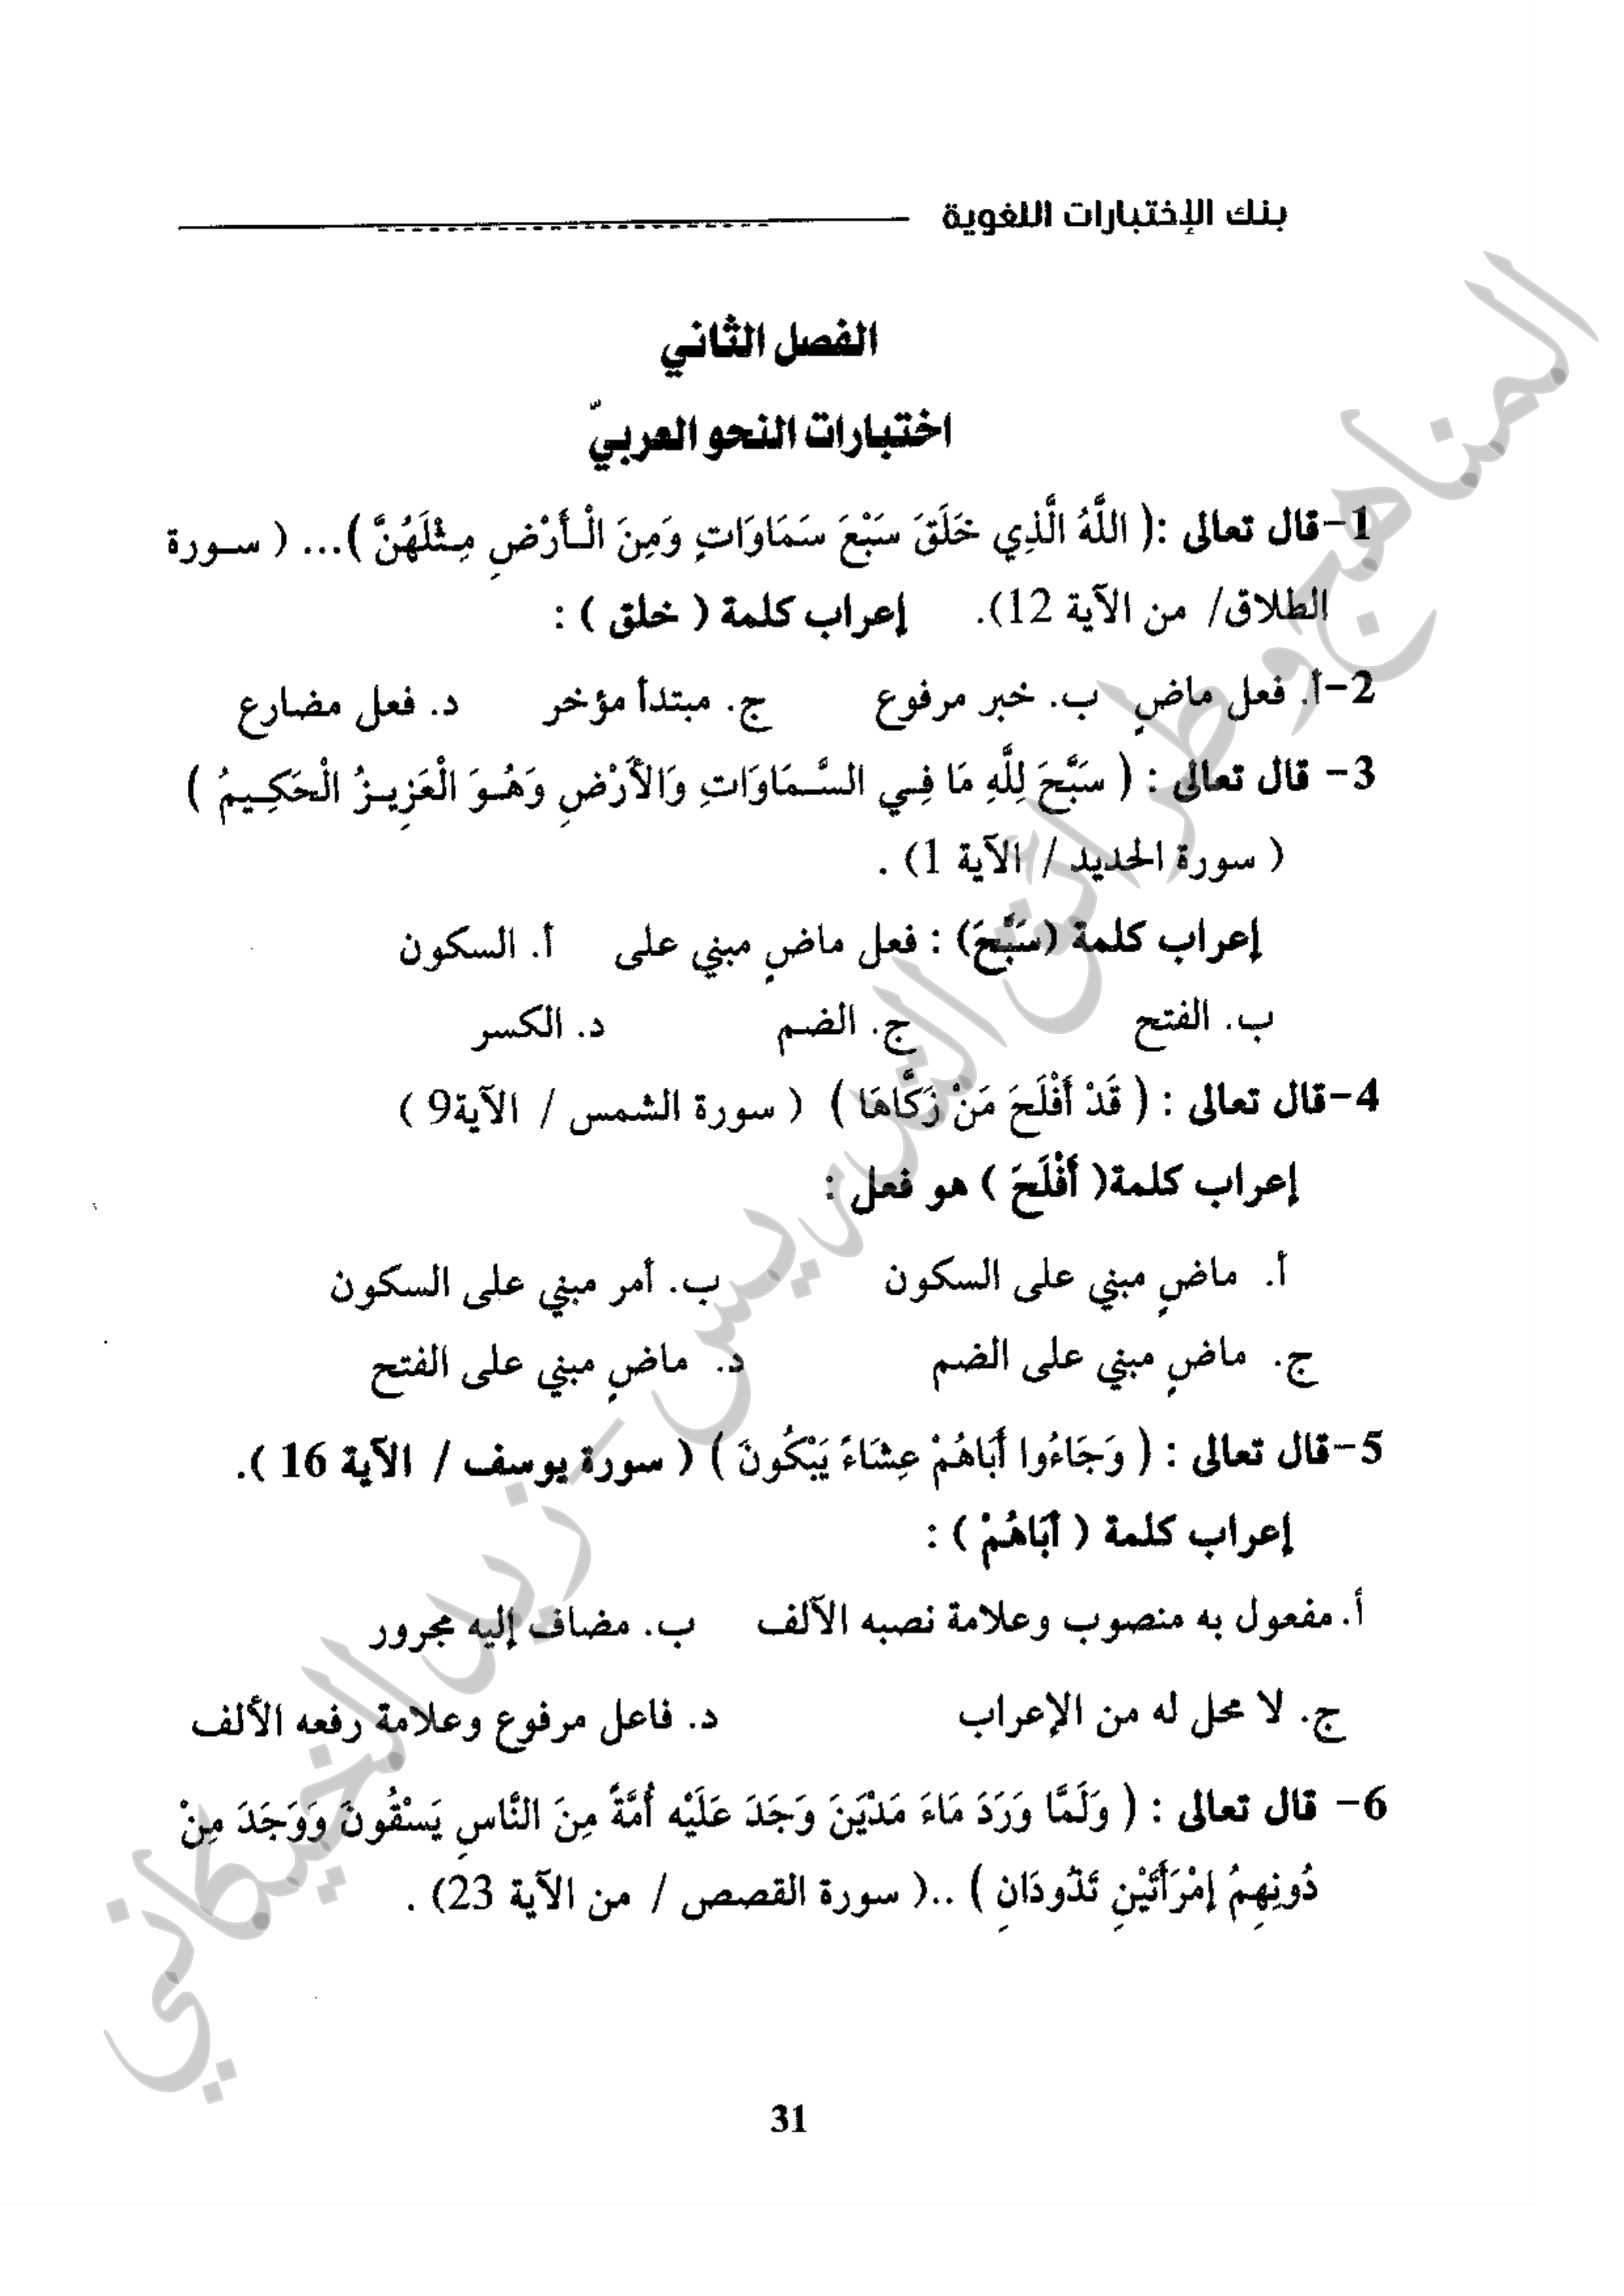 بنك الإختبارات اللغوية
الفصل الثاني
اختبارات النحو العربيّ
1-قال تعالى :( اللَّهُ الَّذِي خَلَقَ سَبْعَ سَمَاوَاتٍ وَمِنَ الْأَرْضِ مِثْلَهُنَّ )... ( سورة
الطلاق/ من الآية 12). إعراب كلمة ( خلق ) :
2-أ. فعل ماضٍ ب. خبر مرفوع ج. مبتدأ مؤخر د. فعل مضارع
3- قال تعالى : ( سَبَّحَ لِلَّهِ مَا فِي السَّمَاوَاتِ وَالأَرْضِ وَهُوَ الْعَزِيزُ الْحَكِيمُ )
( سورة الحديد / الآية 1) .
إعراب كلمة (سَبَّحَ) : فعل ماضٍ مبني على أ. السكون
ب. الفتح ج. الضم د. الكسر
4-قال تعالى : ( قَدْ أَفْلَحَ مَنْ زَكَّاهَا ) ( سورة الشمس / الآية9 )
إعراب كلمة( أَفْلَحَ ) هو فعل :
أ. ماضٍ مبني على السكون ب. أمر مبني على السكون
ج. ماضٍ مبني على الضم د. ماضٍ مبني على الفتح
5-قال تعالى : ( وَجَاءُوا أَبَاهُمْ عِشَاءً يَبْكُونَ ) ( سورة يوسف / الآية 16 ).
إعراب كلمة ( أَبَاهُمْ ) :
أ. مفعول به منصوب وعلامة نصبه الآلف ب. مضاف إليه مجرور
ج. لا محل له من الإعراب د. فاعل مرفوع وعلامة رفعه الألف
6- قال تعالى : ( وَلَمَّا وَرَدَ مَاءَ مَدْيَنَ وَجَدَ عَلَيْه أُمَّةً مِنَ النَّاسِ يَسْقُونَ وَوَجَدَ مِنْ
دُونِهِمُ إمْرَأَتَيْنِ تَذُودَانِ ) ..( سورة القصص / من الآية 23) .
31
المناهج وطرائق التدريس - زيد الخيكاني